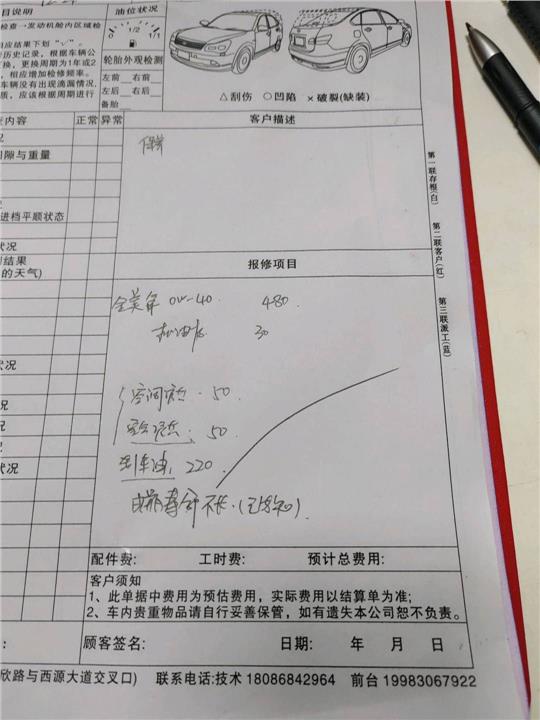 目说明
油位状况
检查一发动机舱内区域检
1/2
相应结果下划"√"。
历史记录，根据车辆公
换，更换周期为1年或2
，相应增加检修频率。
车辆没有出现滴漏情况，
质，应该根据周期进行
轮胎外观检测
左前 右前
左后 右后
备胎
△刮伤 ○凹陷 ×破裂(缺装)
查内容 正常 异常
客户描述
保养
况
间隙与重量
进档平顺状态
状况
结果
的天气)
第一联存根(白)
第二联客户(红)
第三联派工(蓝)
报修项目
全美孚 0W-40 480
机油格 30
空调 50
50
刹车油 220
寿命不长(已告知)
状况
况
况
况
状况
配件费: 工时费: 预计总费用:
客户须知
1、此单据中费用为预估费用，实际费用以结算单为准;
2、车内贵重物品请自行妥善保管，如有遗失本公司恕不负责。
顾客签名: 日期: 年 月 日
欣路与西源大道交叉口) 联系电话:技术 18086842964 前台 19983067922